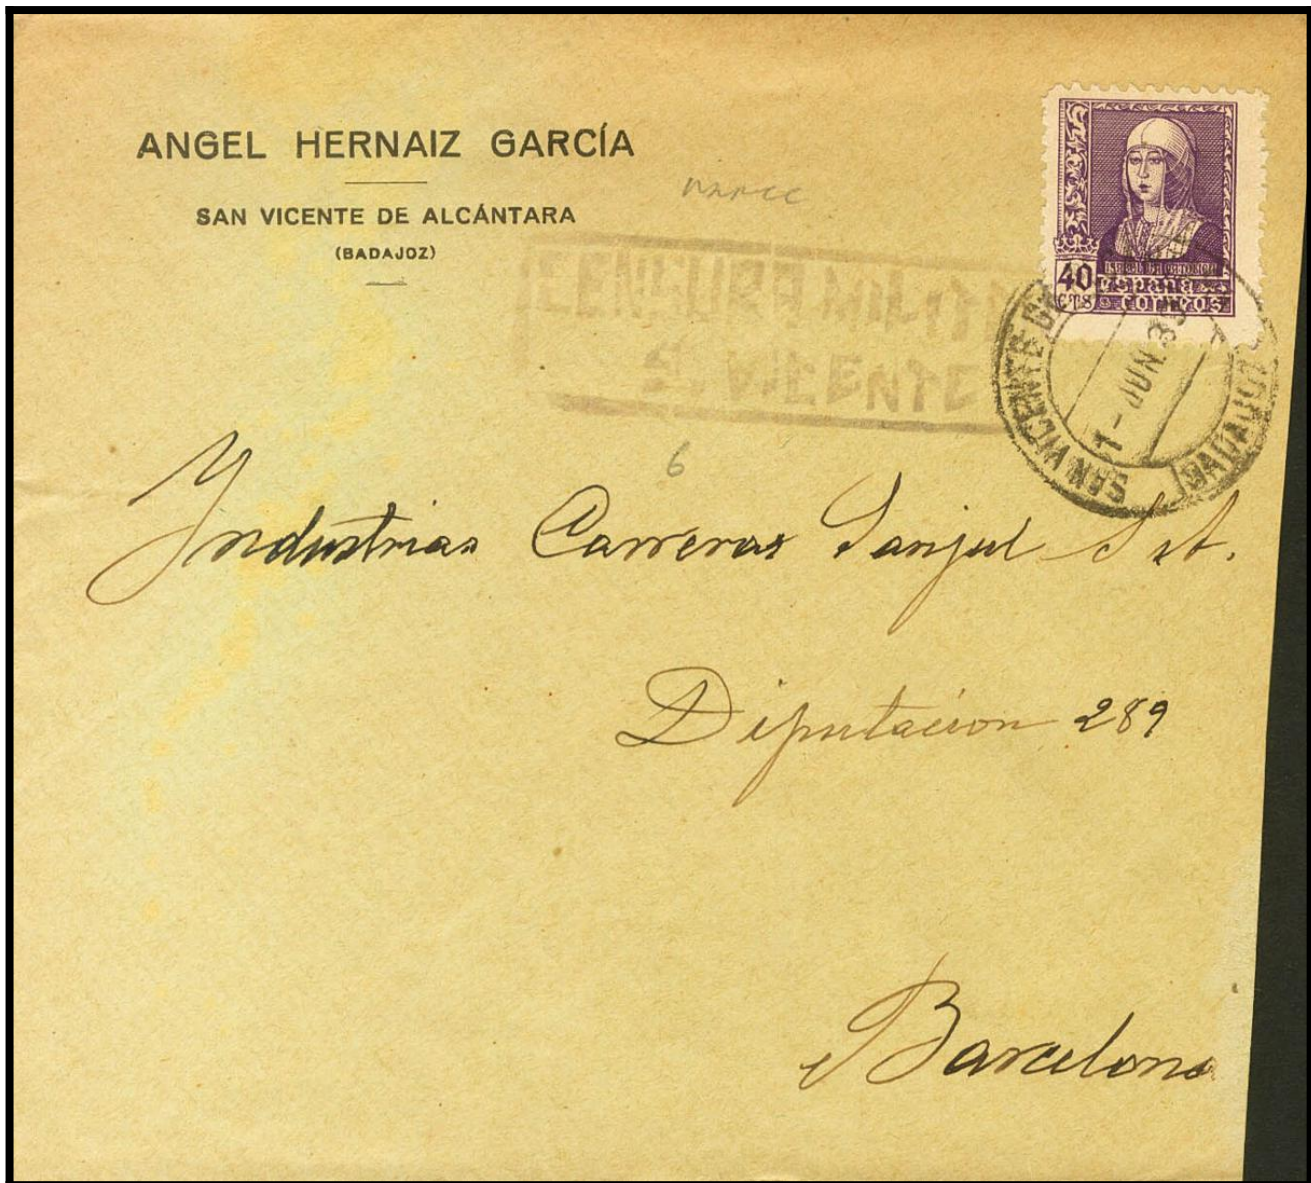 ANGEL HERNAIZ GARCÍA
SAN VICENTE DE ALCÁNTARA
(BADAJOZ)
CENSURA MILIT
S. VICENTE
ISABEL LA CATOLICA
40 CTS
españa
correos
SAN VICENTE DE
1- JUN. 39
BADAJOZ
6
Industrias Carreras Sanjul S. A.
Diputacion 289
Barcelona